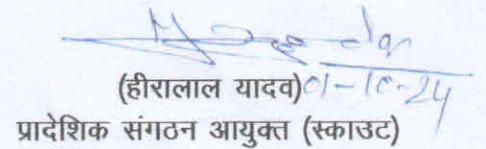 (हीरालाल यादव) 01-10-24
प्रादेशिक संगठन आयुक्त (स्काउट)